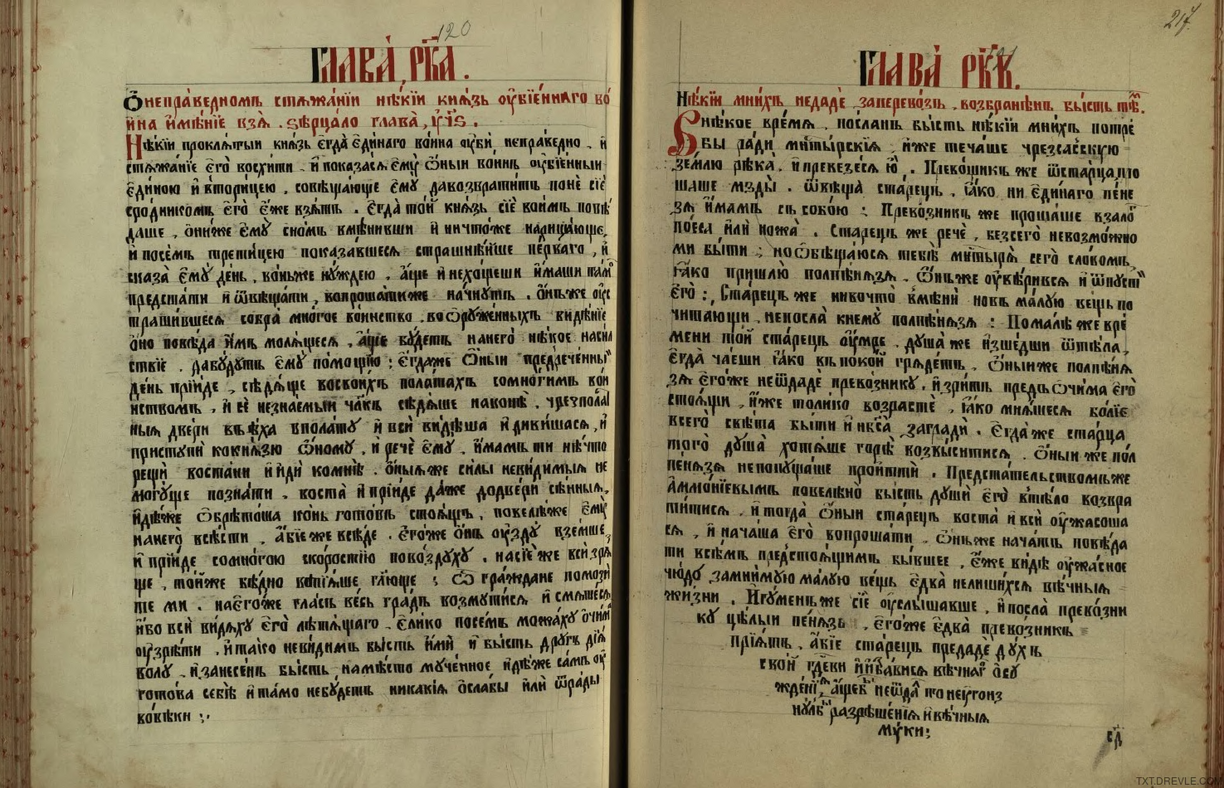 120
ГЛАВА̀, РК҃А.
Ѻ҆неправедномъ стѧжа́нїи нѣ́кїи кнѧ́зь ᲂу҆бїе́ннаго во́
ина и҆мѣ́нїе взѧ̀. ѕе́рцало глава̀,
Нѣ́кїи проклѧ́тыи кнѧ́зь є҆гда̀ є҆ди́наго во́ина ᲂу҆би̑ неправедно, и҆
стѧжа́нїе є҆гѡ̀ восхи́ти. и҆ показа́сѧ є҆мꙋ̀ ѻ҆́ныи во́инъ ᲂу҆бїе́нныи
є҆ди́ною и҆ втори́цею, совѣща́юще є҆мꙋ̀ давозврати́тъ понѐ сїѐ
сро́дникомъ є҆гѡ̀ є҆́же взѧ́тъ. Є҆гда̀ то́й кнѧ́зь сїѐ во́имъ повѣ́
даше, ѻ҆ни́же є҆мꙋ̀ сномъ вмѣни́вши и҆ ничто́же нарица́юще,
и҆ посе́мъ трети́цею показа́вшесѧ страшнѣ́йше пе́рваго, и҆
сказа̀ є҆мꙋ̀ де́нь, во́ньже нꙋ́ждею. а҆́ще и҆ нехо́щеши и҆́маши та́м
предста́ти и҆ ѿвѣща́ти, вопроша́тиже начнꙋ́тъ. ѻ҆́нъже ᲂу҆с
траши́вшесѧ собра̀ мно́гое во́инство воѡрꙋже́нныхъ видѣ́нїе
ѻ҆но̀ повѣ́да и҆̀мъ молѧ́щесѧ, а҆́ще бꙋ́детъ нанего̀ нѣ́кое наси́л
ствїе. дабꙋ́дꙋтъ є҆мꙋ̀ по́мощїю: є҆гда́же ѻ҆́ныи предрече́нныи
де́нь прїи́де, сѣдѧ́ще восвои́хъ пола́тахъ сомно́гимъ во́и
нствомъ, и҆ сѐ незна́емыи чл҃къ сѣдѧ́ше наконѣ̀, чрезпола́т
ныѧ две́ри въѣ́ха вполатꙋ и҆ вси̑ ви́дѣша и҆ диви́шасѧ, и҆
пристꙋпи̑ кокнѧ́зю ѻ҆́номꙋ, и҆ речѐ є҆мꙋ̀, и҆́мамъ ти нѣ́что
рещи̑ воста́ни и҆ и҆ди̑ комнѣ̀. ѻ҆́ныѧже си́лы неви́димыѧ не
могꙋ́ще позна́ти, воста̀ и҆ прїи́де да́же додве́ри сѣ́нныѧ,
и҆дѣ́же ѡ҆брѣто́ша ко́нь гото́въ стоѧ́щъ, повелѣ́же є҆мꙋ̀
нанего̀ всѣ́сти. а҆́бїе же всѣ́де. є҆го́же ѻ҆́нъ ᲂу҆здꙋ̀ взе́мше,
и҆ прїи́де сомно́гою ско́ростїю повоздꙋ́хꙋ, насїе́ же вси̑ зрѧ́
ще, то́йже бѣ́дно вопїѧ́ше гл҃юще: ѽ гра́ждане помози́
те ми. нає҆го́же гла́съ ве́сь гра́дъ возмꙋти́сѧ и҆ смѧте́сѧ
и҆́бо вси̑ ви́дѧхꙋ є҆гѡ̀ летѧ́щаго. є҆ли́ко посе́мъ можа́хꙋ ѻ҆чи́ма
ᲂу҆зрѣ́ти, и҆ та́ко неви́димъ бы́сть и҆́ми и҆ бы́сть дрꙋ́гъ дїѧ́
волꙋ, и҆ занесе́нъ бы́сть на мѣ́сто мꙋче́нное и҆дѣ́же са́мъ ᲂу҆
гото́ва себѣ̀ и҆ та́мо небꙋ́детъ никакїѧ ѻ҆сла́бы и҆лѝ ѿра́ды
вовѣ́ки:,
217
ГЛАВА̀ РК҃В.
Нѣ́кїи мни́хъ недадѐ заперево́зъ, возбране́нъ бы́сть тѣ́м.
Внѣ́кое вре́мѧ, по́сланъ бы́сть нѣ́кїи мни́хъ потре́
бы ра́ди мн҃тырскїѧ и҆́же теча́ше чрезса́сскꙋю
зе́млю рѣка̀. и҆ превезе́сѧ ю҆̀. Преко́шикъ же ѿста́рца про
ша́ше мзды̀. ѿвѣща̀ ста́рецъ, ꙗ҆́ко ни є҆ди́наго пе́не
зѧ и҆́мамъ съ собо́ю: Прево́зникъ же проша́ше взало́г
по́еса и҆лѝ ножа̀. Ста́рецъ же речѐ, безсего̀ невозмо́жно
ми бы́ти; но ѡ҆бѣща́юсѧ тебѣ̀ мн҃тырѧ сего̀ сло́вомъ,
ꙗ҆́ко пришлю̀ полпѣ́нѧзѧ. Ѻ҆́нъже ᲂу҆вѣ́рисѧ и҆ ѿпꙋсти
є҆гѡ̀:, Ста́рецъ же нивочто̀ вмѣни̑ новъ ма́лꙋю ве́щь по
чита́ющи, непосла̀ кнемꙋ̀ полпѣ́нѧзѧ: Пома́лѣ же вре́
мени то́й ста́рецъ ᲂу҆́мре. дꙋша́ же и҆зше́дши ѿтѣ́ла,
є҆гда̀ ча́ѧши ꙗ҆́ко въ поко́й грѧде́тъ, ѻ҆́ныиже полпѣ́нѧ
зѧ є҆го́же неѿдадѐ прево́зникꙋ, и҆ зри́тъ предъ ѻ҆чи́ма є҆гѡ̀
стоѧ́щи, и҆́же толи́ко возрастѐ, ꙗ҆́ко мнѧ́щесѧ бо́лїе
всего̀ свѣ́та бы́ти и҆ нб҃са̀ загради̑. Є҆гда́ же ста́рца
того̀ дꙋша̀ хотѧ́ше горѣ̀ возвы́ситисѧ. Ѻ҆́ныи же пол
пе́нѧзѧ непопꙋща́ше пройти́. Предста́тельствомъже
Аммонїевымъ повеле́но бы́сть дꙋши̑ є҆гѡ̀ втѣ́ло возвра
ти́тисѧ, и҆ тогда̀ ѻ҆́ныи ста́рецъ воста̀ и҆ вси̑ ᲂу҆жасо́ша
сѧ, и҆ нача́ша є҆гѡ̀ вопроша́ти. Ѻ҆́нъже нача́тъ повѣ́да
ти всѣ́мъ предстоѧ́щимъ бы́вшее, є҆́же ви́дѣ ᲂу҆жа́сное
чю́до замни́мꙋю ма́лꙋю ве́щь є҆два̀ нелиши́хсѧ вѣ́чныѧ
жи́зни. Игꙋ́менъже сїѐ ᲂу҆слы́шавше, и҆ посла̀ прево́зни
кꙋ цѣ́лыи пе́нѧзь, є҆го́же є҆два̀ прево́зникъ
прїѧ́тъ, а҆́бїе ста́рецъ предадѐ дꙋ́хъ
сво́й гд҃еви и҆ и҆зба́висѧ вѣ́чнаго ѻ҆сꙋ
жде́нїѧ,
разрѣше́нїѧ и҆ вѣ́чныѧ
мꙋ́ки:
TXT.DREVLE.COM